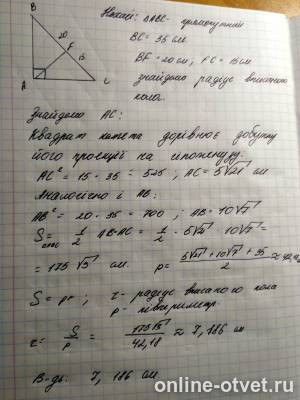 B
20
F
15
A
C
Нехай: ΔABC - прямокутний
BC = 35 см
BF = 20 см, FC = 15 см
знайдемо радіус вписаного
кола.
Знайдемо AC:
Квадрат катета дорівнює добутку
його проєкції на гіпотенузу:
AC² = 15 · 35 = 525 ; AC = 5√21 см
Аналогічно і AB:
AB² = 20 · 35 = 700 ; AB = 10√7
S = 1/2 AB·AC = 1/2 · 5√21 · 10√7 =
= 175√3 см. p = (5√21 + 10√7 + 35)/2 ≈ 42,18
S = pr ; r - радіус вписаного кола
p - півпериметр.
r = S/p = 175√3/42,18 ≈ 7,186 см
В-дь: 7,186 см
online-otvet.ru